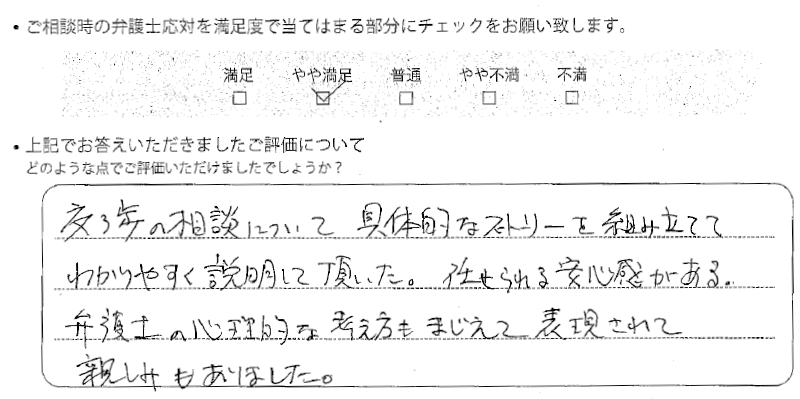 ・ご相談時の弁護士応対を満足度で当てはまる部分にチェックをお願い致します。
満足 やや満足 普通 やや不満 不満
□ ☑ □ □ □
・上記でお答えいただきましたご評価について
どのような点でご評価いただけましたでしょうか？
の相談について 具体的なストーリーを組み立てて
わかりやすく説明して頂いた。任せられる安心感がある。
弁護士の心理的な考え方もまじえて表現されて
親しみもありました。